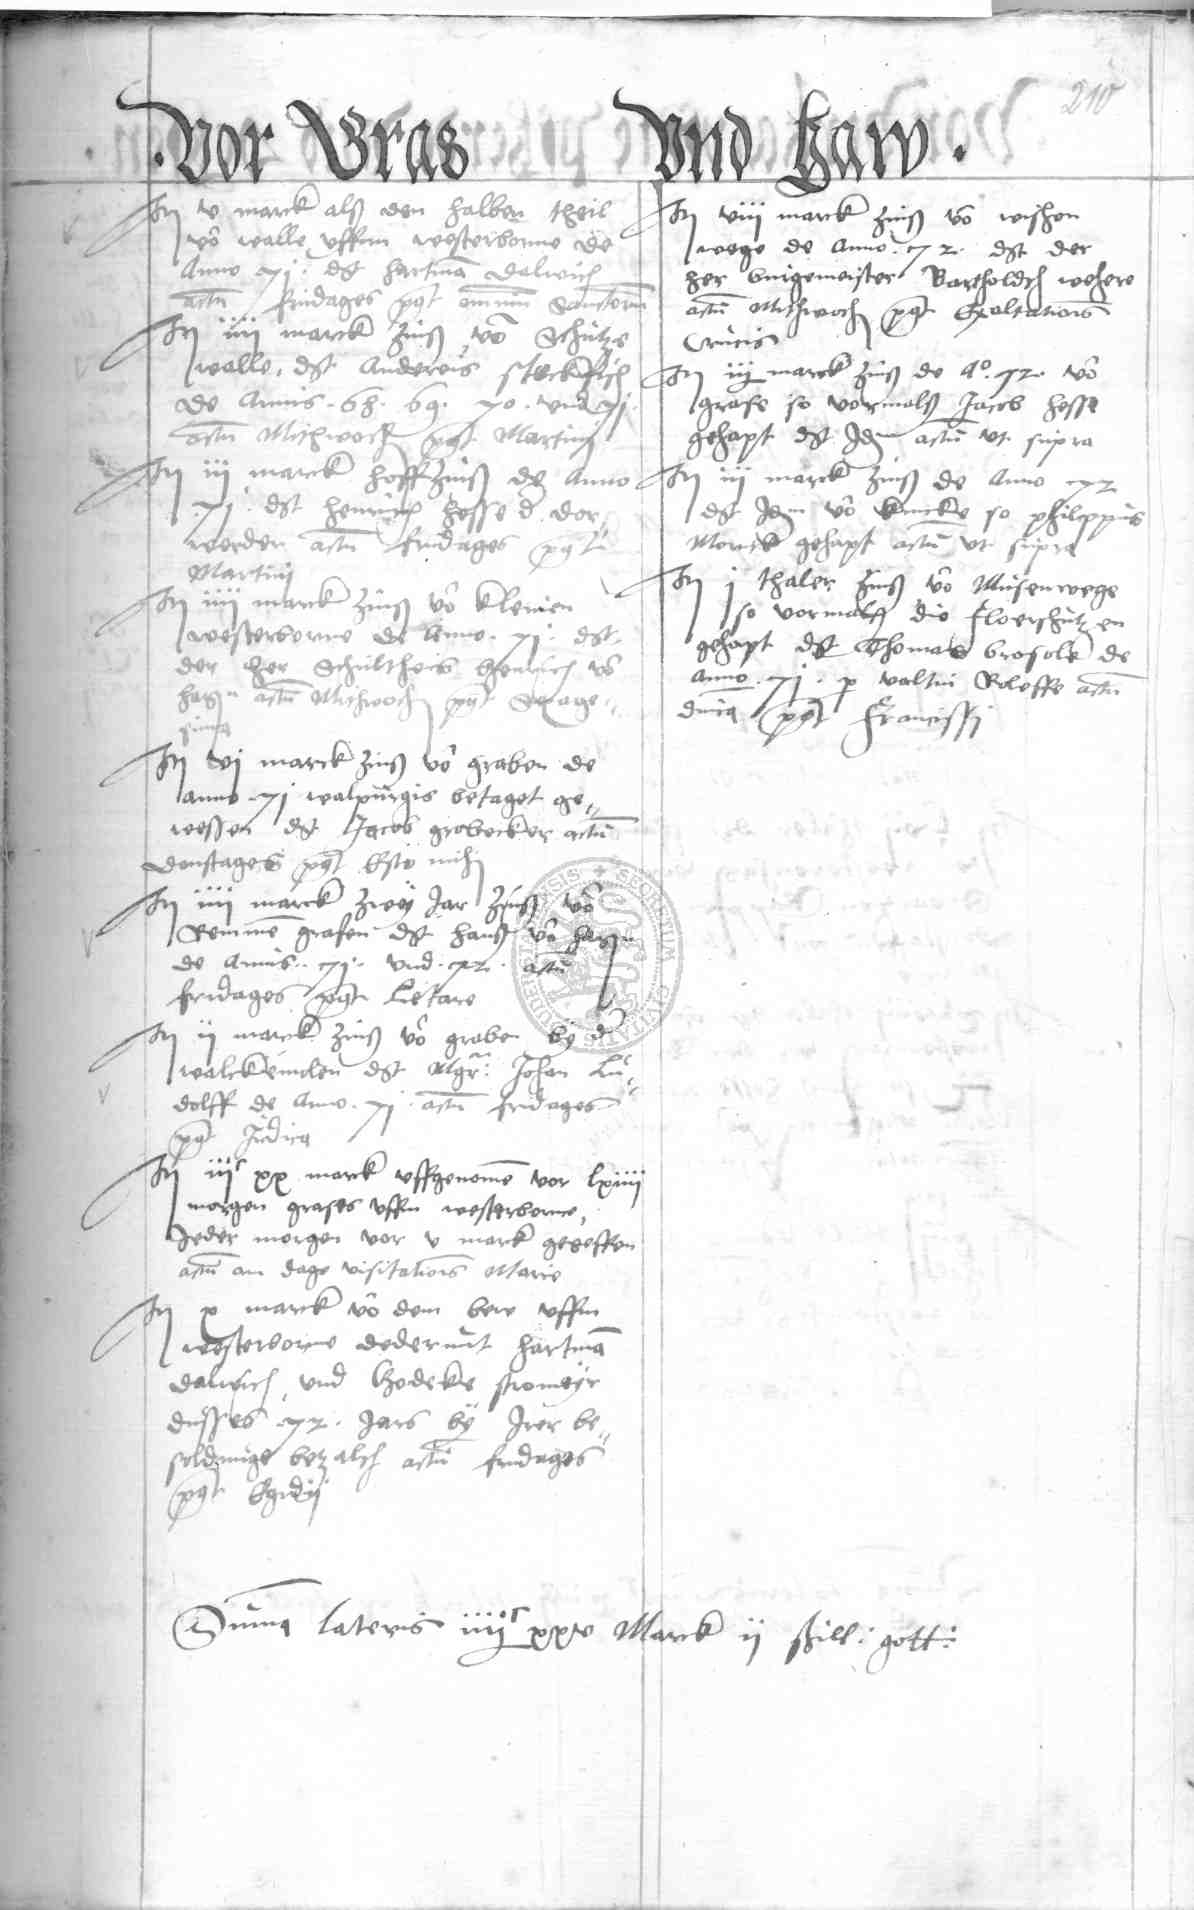 210
Vor Gras Vnd Haw
It v marck alß den halben theil
vo walle vffm westerborne de
Anno 71 dt hartma dalwich
actu fridages pt omniu Sanctoru
It iiij marck zinß vo Schutze
walle, dt Andereis stockfisch
de Annis 68. 69. 70. vnd 71.
actu Mithwoch pt Martinj
It iij marck hoffzinß de Anno
71. dt henrich hesse
werden actu fridages pt
Martinj
It iiij marck zinß vo kleinen
westerborne de Anno 71. dt
der her Schultheis henrich vo
hagn actu Mithwoch pt Sexage-
sima
It vj marck zinß vo graben de
anno 71 walpurgis betaget ge-
wessen dt Jacob grobecker actu
donstages pt Esto mihi
It iiij marck zwey Jar zinß vo
grasen dt hanß vo hagn
de Annis 71. vnd 72. actu
fridages pt Letare
It ij marck zinß vo graben by d
walckemolen dt Mgr. Johan Lu-
dolff de Anno 71. actu fridages
pt Judica
It iijc xx marck vffgenome vor lxiiij
morgen grases vffm westerborne,
Jeder morgen vor v marck
actu am dage visitationis Marie
It x marck vo dem vffm
westerborne dederunt hartma
dalwich, vnd Godeke stromeyr
dusses 72. Jars by Irer be-
soldunge betzalch actu fridages
pt Egidij
It viij marck zinß vo wishen
wege de Anno 72. dt der
her burgemeister Bartholdch wehere
actu Mithwoch pt Exaltationis
Crucis
It iij marck zinß de Ao. 72. vo
grase so vormalß Jacob hesse
gehapt dt Idm actu vt supra
It iij marck zinß de Anno 72
dt Idm vo so philippus
gehapt actu vt supra
It j thaler zinß vo Musenwege
so vormalß die floerschutzen
gehapt dt Thomas brosole de
anno 71. p valtin Roleffe actu
dnica pt Francissj
Suma lateris iiijc xxv Marck ij shill: gott:
SECRETUM CIVITATIS